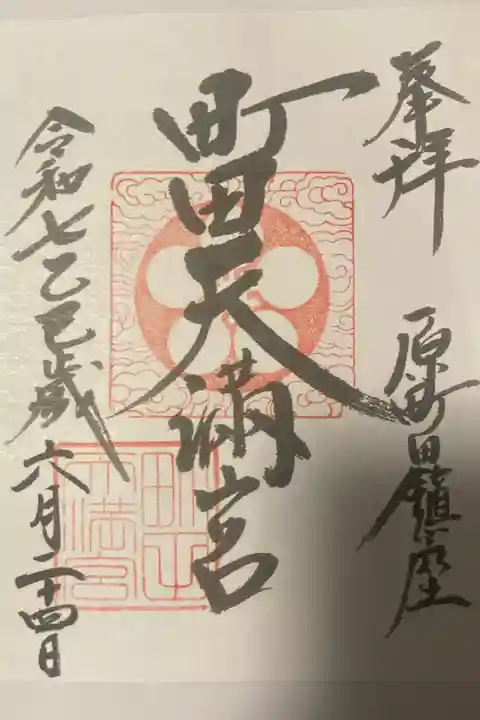 奉拝 原町田鎮座
町田天満宮
令和七乙巳歳六月二十四日
町田天満宮